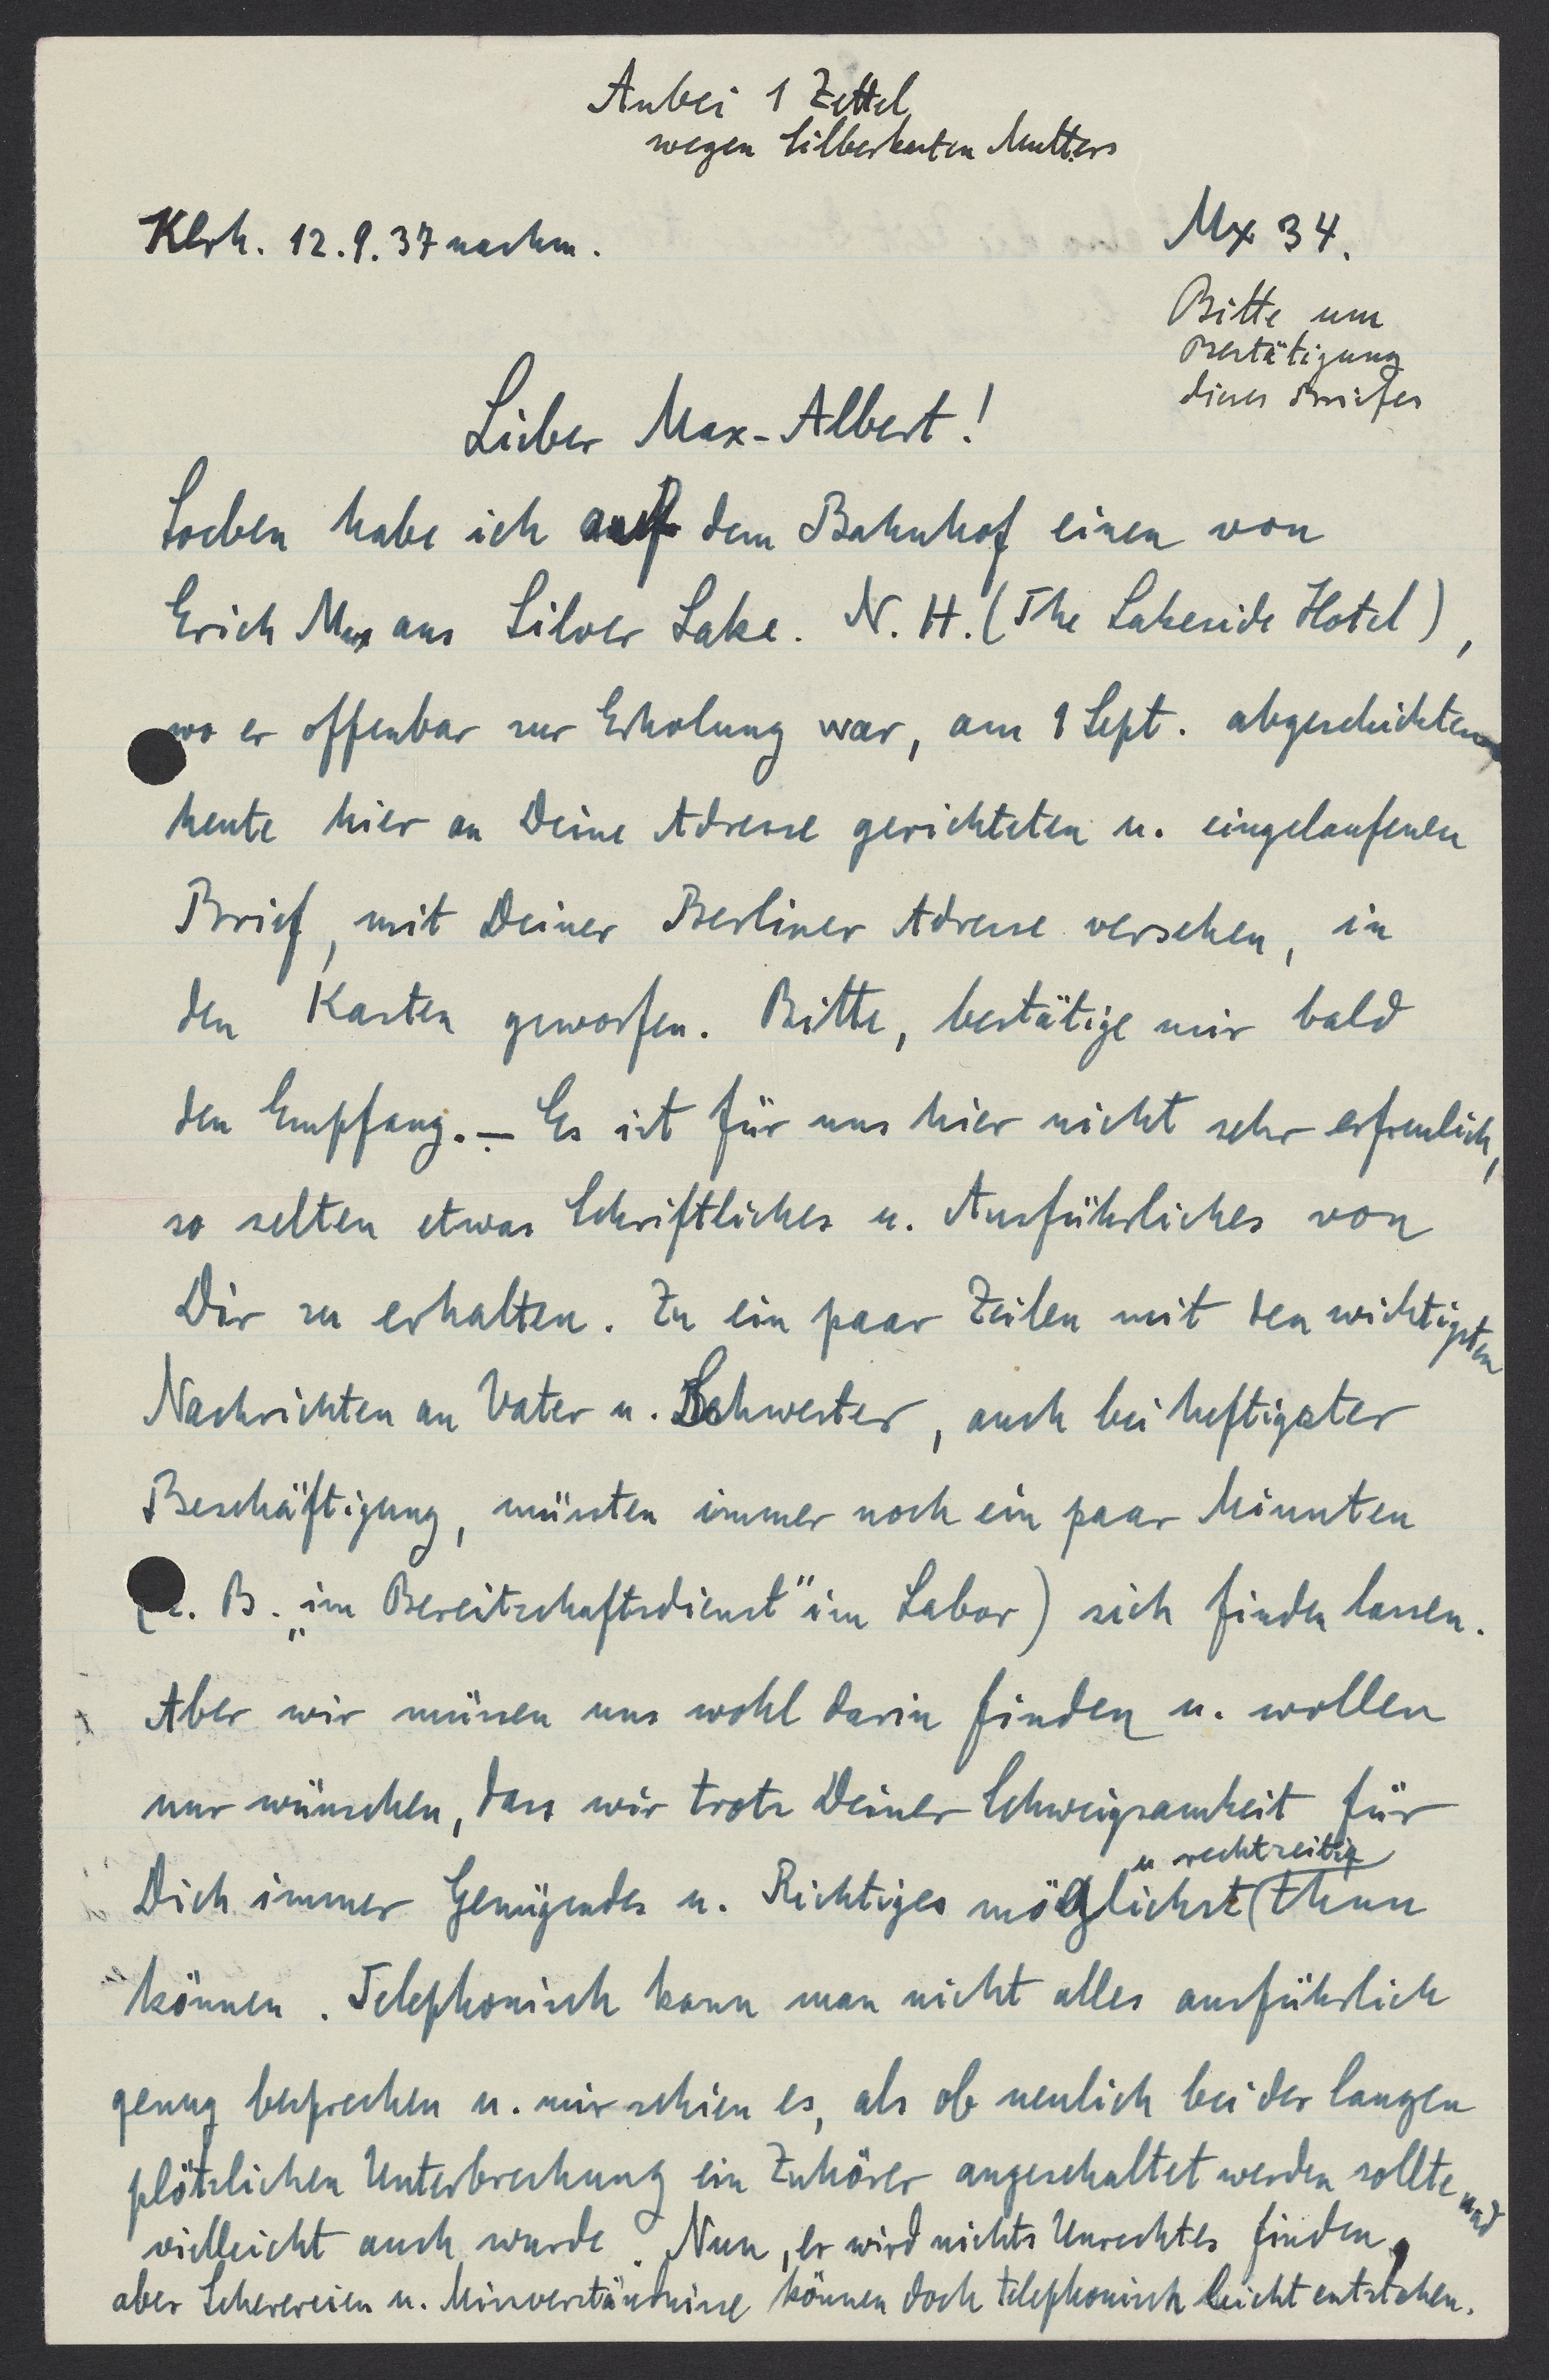 Anbei 1 Zettel
wegen Silberkasten Mutters
Klrh. 12.9.37 nachm.
Mx 34.
Bitte um
Bestätigung
dieses Briefes
Lieber Max-Albert!
Soeben habe ich auf dem Bahnhof einen von
Erich Mx aus Silver Lake. N. H. (The Lakeside Hotel),
wo er offenbar zur Erholung war, am 1 Sept. abgeschickten
heute hier an Deine Adresse gerichteten u. eingelaufenen
Brief, mit Deiner Berliner Adresse versehen, in
den Kasten geworfen. Bitte, bestätige mir bald
den Empfang. – Es ist für uns hier nicht sehr erfreulich,
so selten etwas Schriftliches u. Ausführliches von
Dir zu erhalten. Zu ein paar Zeilen mit den wichtigsten
Nachrichten an Vater u. Schwester, auch bei heftigster
Beschäftigung, müssten immer noch ein paar Minuten
(z. B. „im Bereitschaftsdienst" im Labor) sich finden lassen.
Aber wir müssen uns wohl darin finden u. wollen
nur wünschen, dass wir trotz Deiner Schweigsamkeit für
u rechtzeitig
Dich immer Genügendes u. Richtiges möglichst thun
können. Telephonisch kann man nicht alles ausführlich
genug besprechen u. mir schien es, als ob neulich bei der langen
plötzlichen Unterbrechung ein Zuhörer angeschaltet werden sollte und
vielleicht auch wurde. Nun, er wird nichts Unrechtes finden,
aber Scherereien u. Missverständnisse können doch telephonisch leicht entstehen.